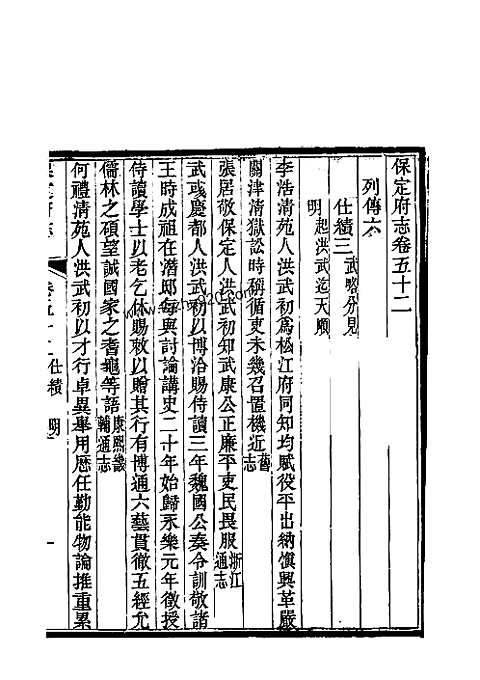 保定府志卷五十二
列傳六
仕績三 武略分見
明 起洪武迄天順
李浩淸苑人洪武初爲松江府同知均賦役平出納愼興革嚴
關津淸獄訟時稱循吏未幾召置機近 舊志
張居敬保定人洪武初知武康公正廉平吏民畏服 浙江通志
武彧慶都人洪武初以博洽賜侍讀三年魏國公奏令訓敬諸
王時成祖在潛邸每與討論講史二十年始歸永樂元年徵授
侍讀學士以老乞休賜敕以贈其行有博通六藝貫徹五經允
儒林之碩望誠國家之耆龜等語 康熙畿輔通志
何禮淸苑人洪武初以才行卓異舉用歷任勤能物論推重累
保定府志
卷五十二 仕績 明
一
www.1020.com